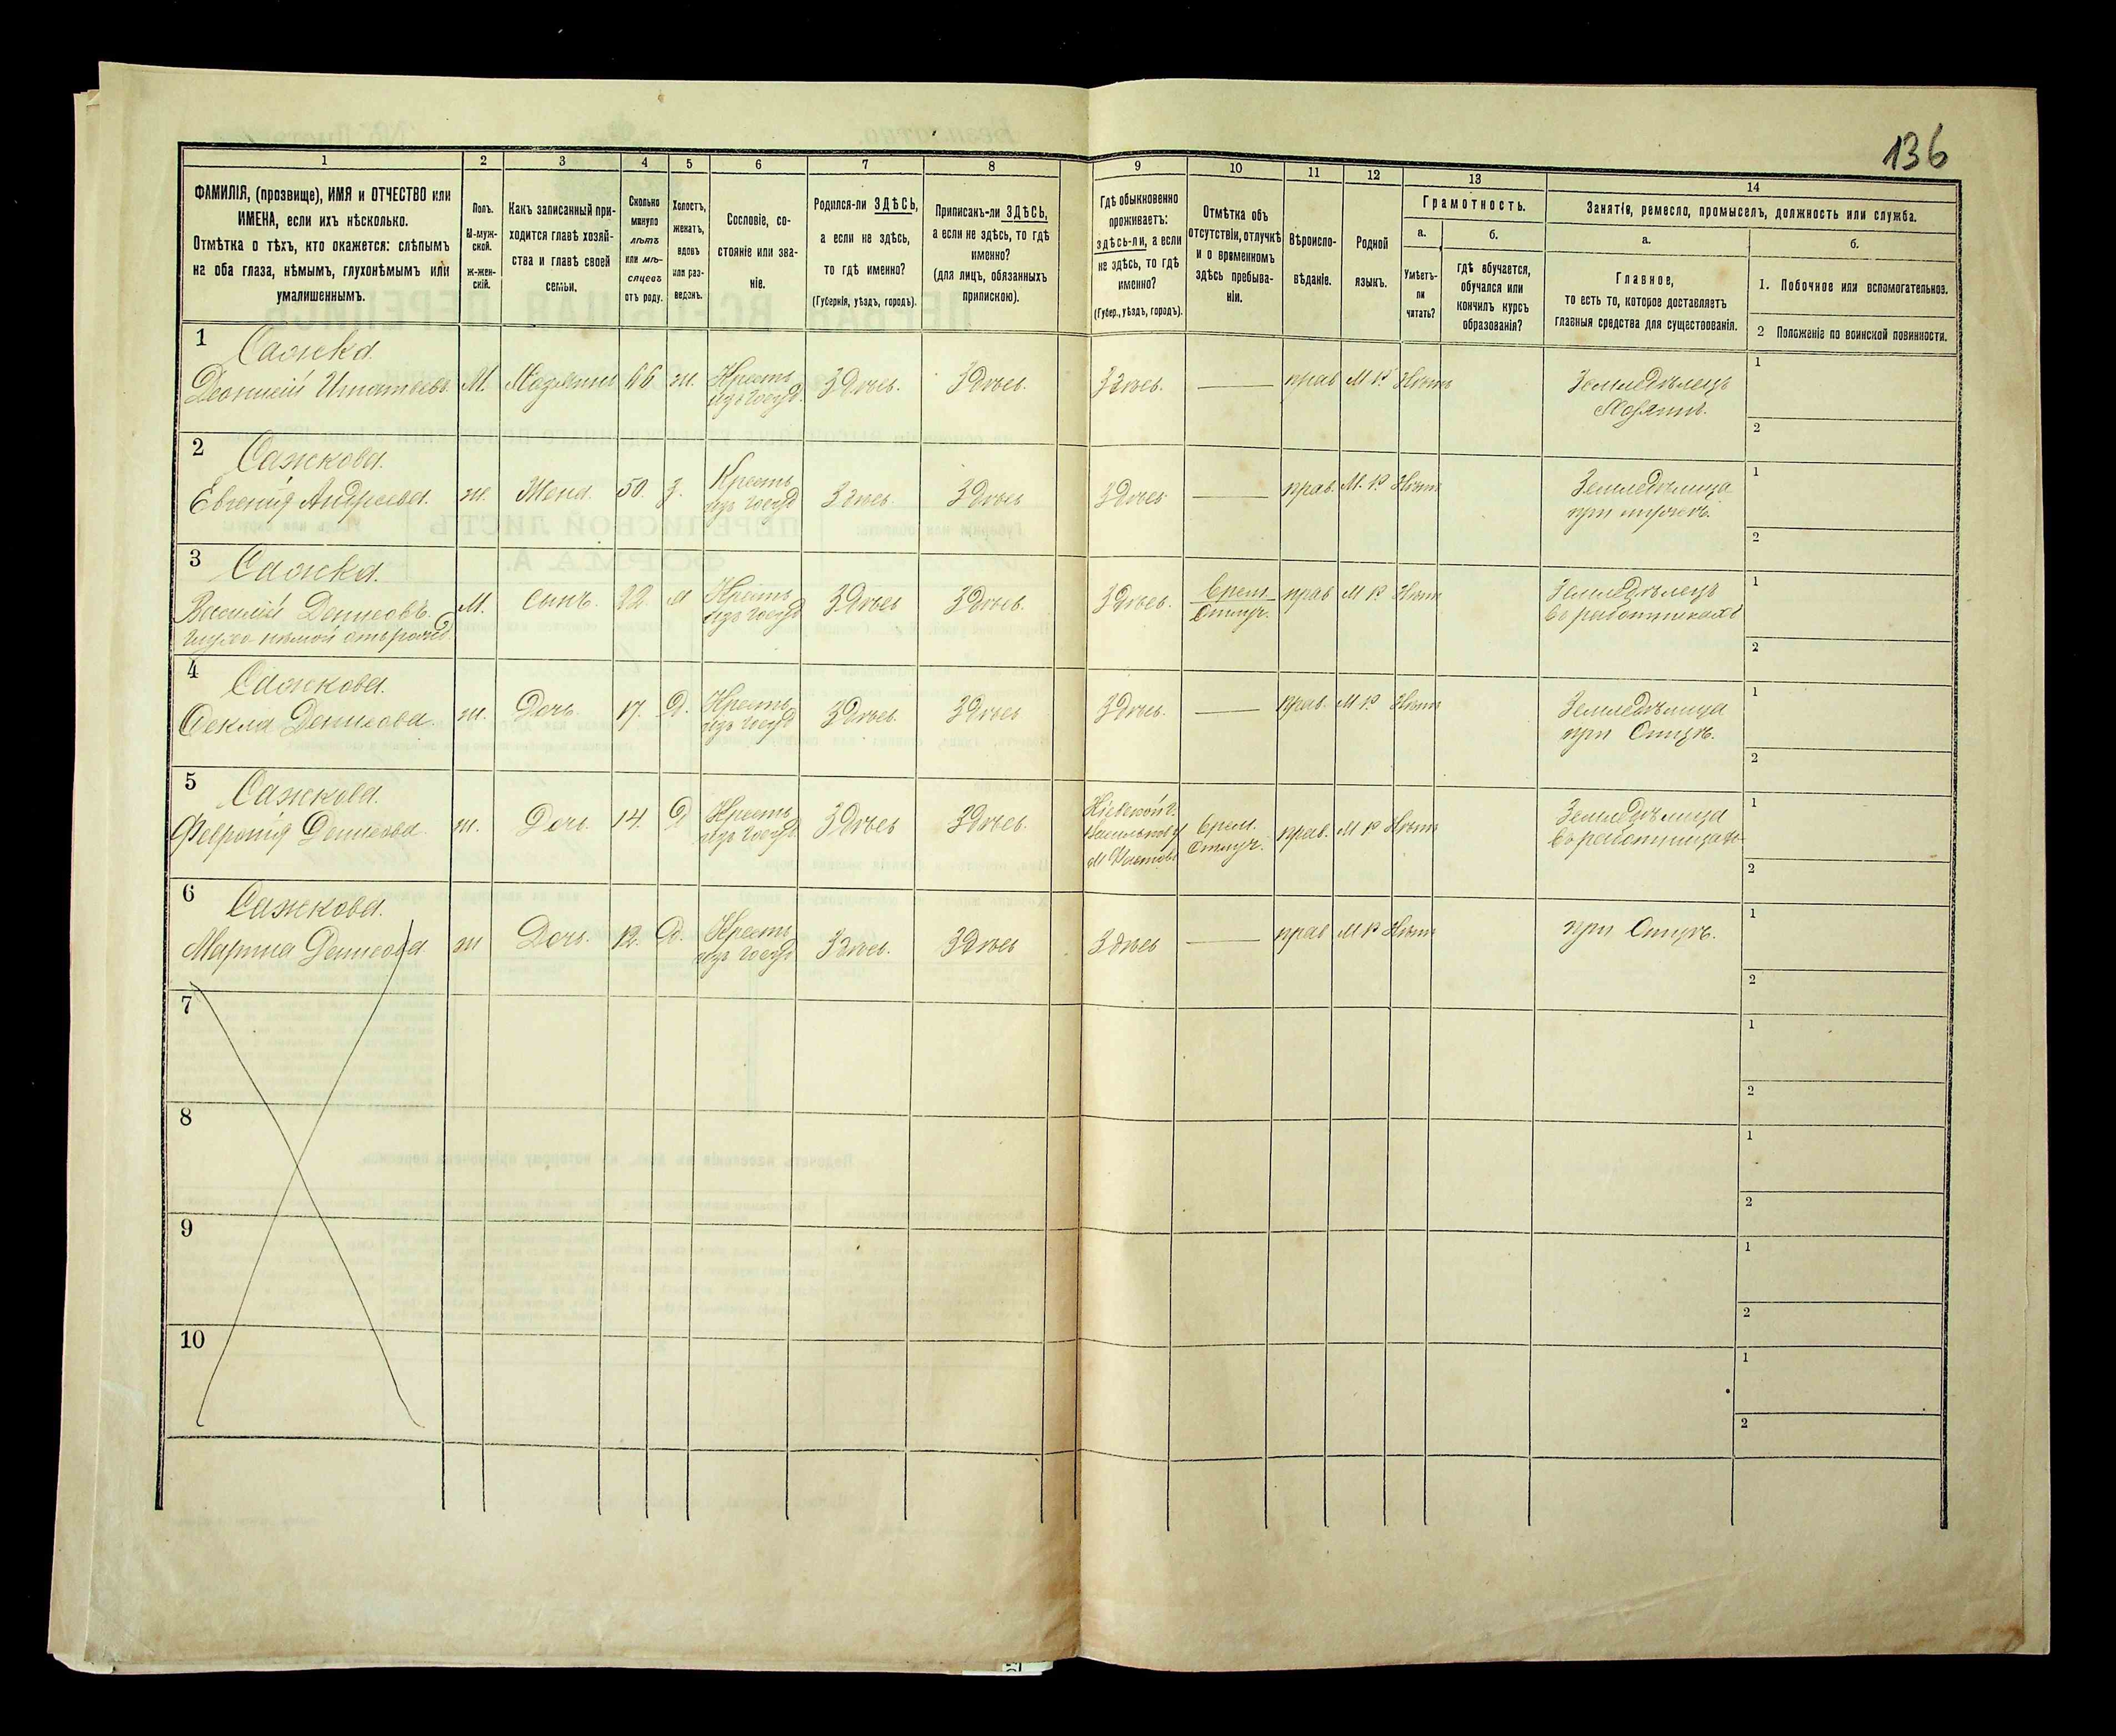 136
1 2 3 4 5 6 7 8 9 10 11 12 13 14
ФАМИЛІЯ, (прозвище), ИМЯ и ОТЧЕСТВО или
ИМЕНА, если ихъ нѣсколько.
Отмѣтка о тѣхъ, кто окажется: слѣпымъ
на оба глаза, нѣмымъ, глухонѣмымъ или
умалишеннымъ.
Полъ.
М-муж-
ской.
ж-жен-
скій.
Какъ записанный при-
ходится главѣ хозяй-
ства и главѣ своей
семьи.
Сколько
минуло
лѣтъ
или мѣ-
сяцевъ
отъ роду.
Холостъ,
женатъ,
вдовъ
или раз-
веденъ.
Сословіе, со-
стояніе или зва-
ніе.
Родился-ли ЗДѢСЬ,
а если не здѣсь,
то гдѣ именно?
(Губернія, уѣздъ, городъ).
Приписанъ-ли ЗДѢСЬ,
а если не здѣсь, то гдѣ
именно?
(для лицъ, обязанныхъ
припискою).
Гдѣ обыкновенно
проживаетъ:
здѣсь-ли, а если
не здѣсь, то гдѣ
именно?
(Губер., уѣздъ, городъ).
Отмѣтка объ
отсутствіи, отлучкѣ
и о временномъ
здѣсь пребыва-
ніи.
Вѣроиспо-
вѣданіе.
Родной
языкъ.
Грамотность.
а.
Умѣетъ-
ли
читать?
б.
гдѣ обучается,
обучался или
кончилъ курсъ
образованія?
Занятіе, ремесло, промыселъ, должность или служба.
а.
Главное,
то есть то, которое доставляетъ
главныя средства для существованія.
б.
1. Побочное или вспомогательное.
2 Положеніе по воинской повинности.
1 Сажка
Діонисій Игнатьевъ М. Хозяинъ 66 ж. Кресть. изъ госуд. Здѣсь. Здѣсь. Здѣсь. — прав М Р Нѣтъ Земледѣлецъ 1
Хозяинъ. 2
2 Сажкова.
Евгенія Андреева ж. Жена. 50. З. Кресть изъ госуд Здѣсь Здѣсь Здѣсь — прав. М. Р Нѣтъ Земледѣлица 1
при мужѣ. 2
3 Сажка.
Василій Денисовъ. М. Сынъ. 22. Кресть изъ госуд Здѣсь Здѣсь. Здѣсь. Врем. Отлуч. прав М Р Нѣтъ Земледѣлецъ 1
глухо нѣмой отъ рожд. въ работникахъ 2
4 Сажкова.
Фекла Денисова ж. Дочь. 17. Д. Кресть изъ госуд Здѣсь. Здѣсь Здѣсь. — прав. М Р Нѣтъ Земледѣлица 1
при Отцѣ. 2
5 Сажкова.
Февронія Денисова ж. Дочь. 14. Д Кресть изъ госуд Здѣсь Здѣсь. Кіевской г. Васильков у м Фастовъ Врем. Отлуч. прав. М Р Нѣтъ Земледѣлица 1
въ работницахъ 2
6 Сажкова.
Марина Денисова ж Дочь. 12. Д. Кресть изъ госуд Здѣсь. Здѣсь Здѣсь — прав М Р Нѣтъ при Отцѣ. 1
2
7 1
2
8 1
2
9 1
2
10 1
2